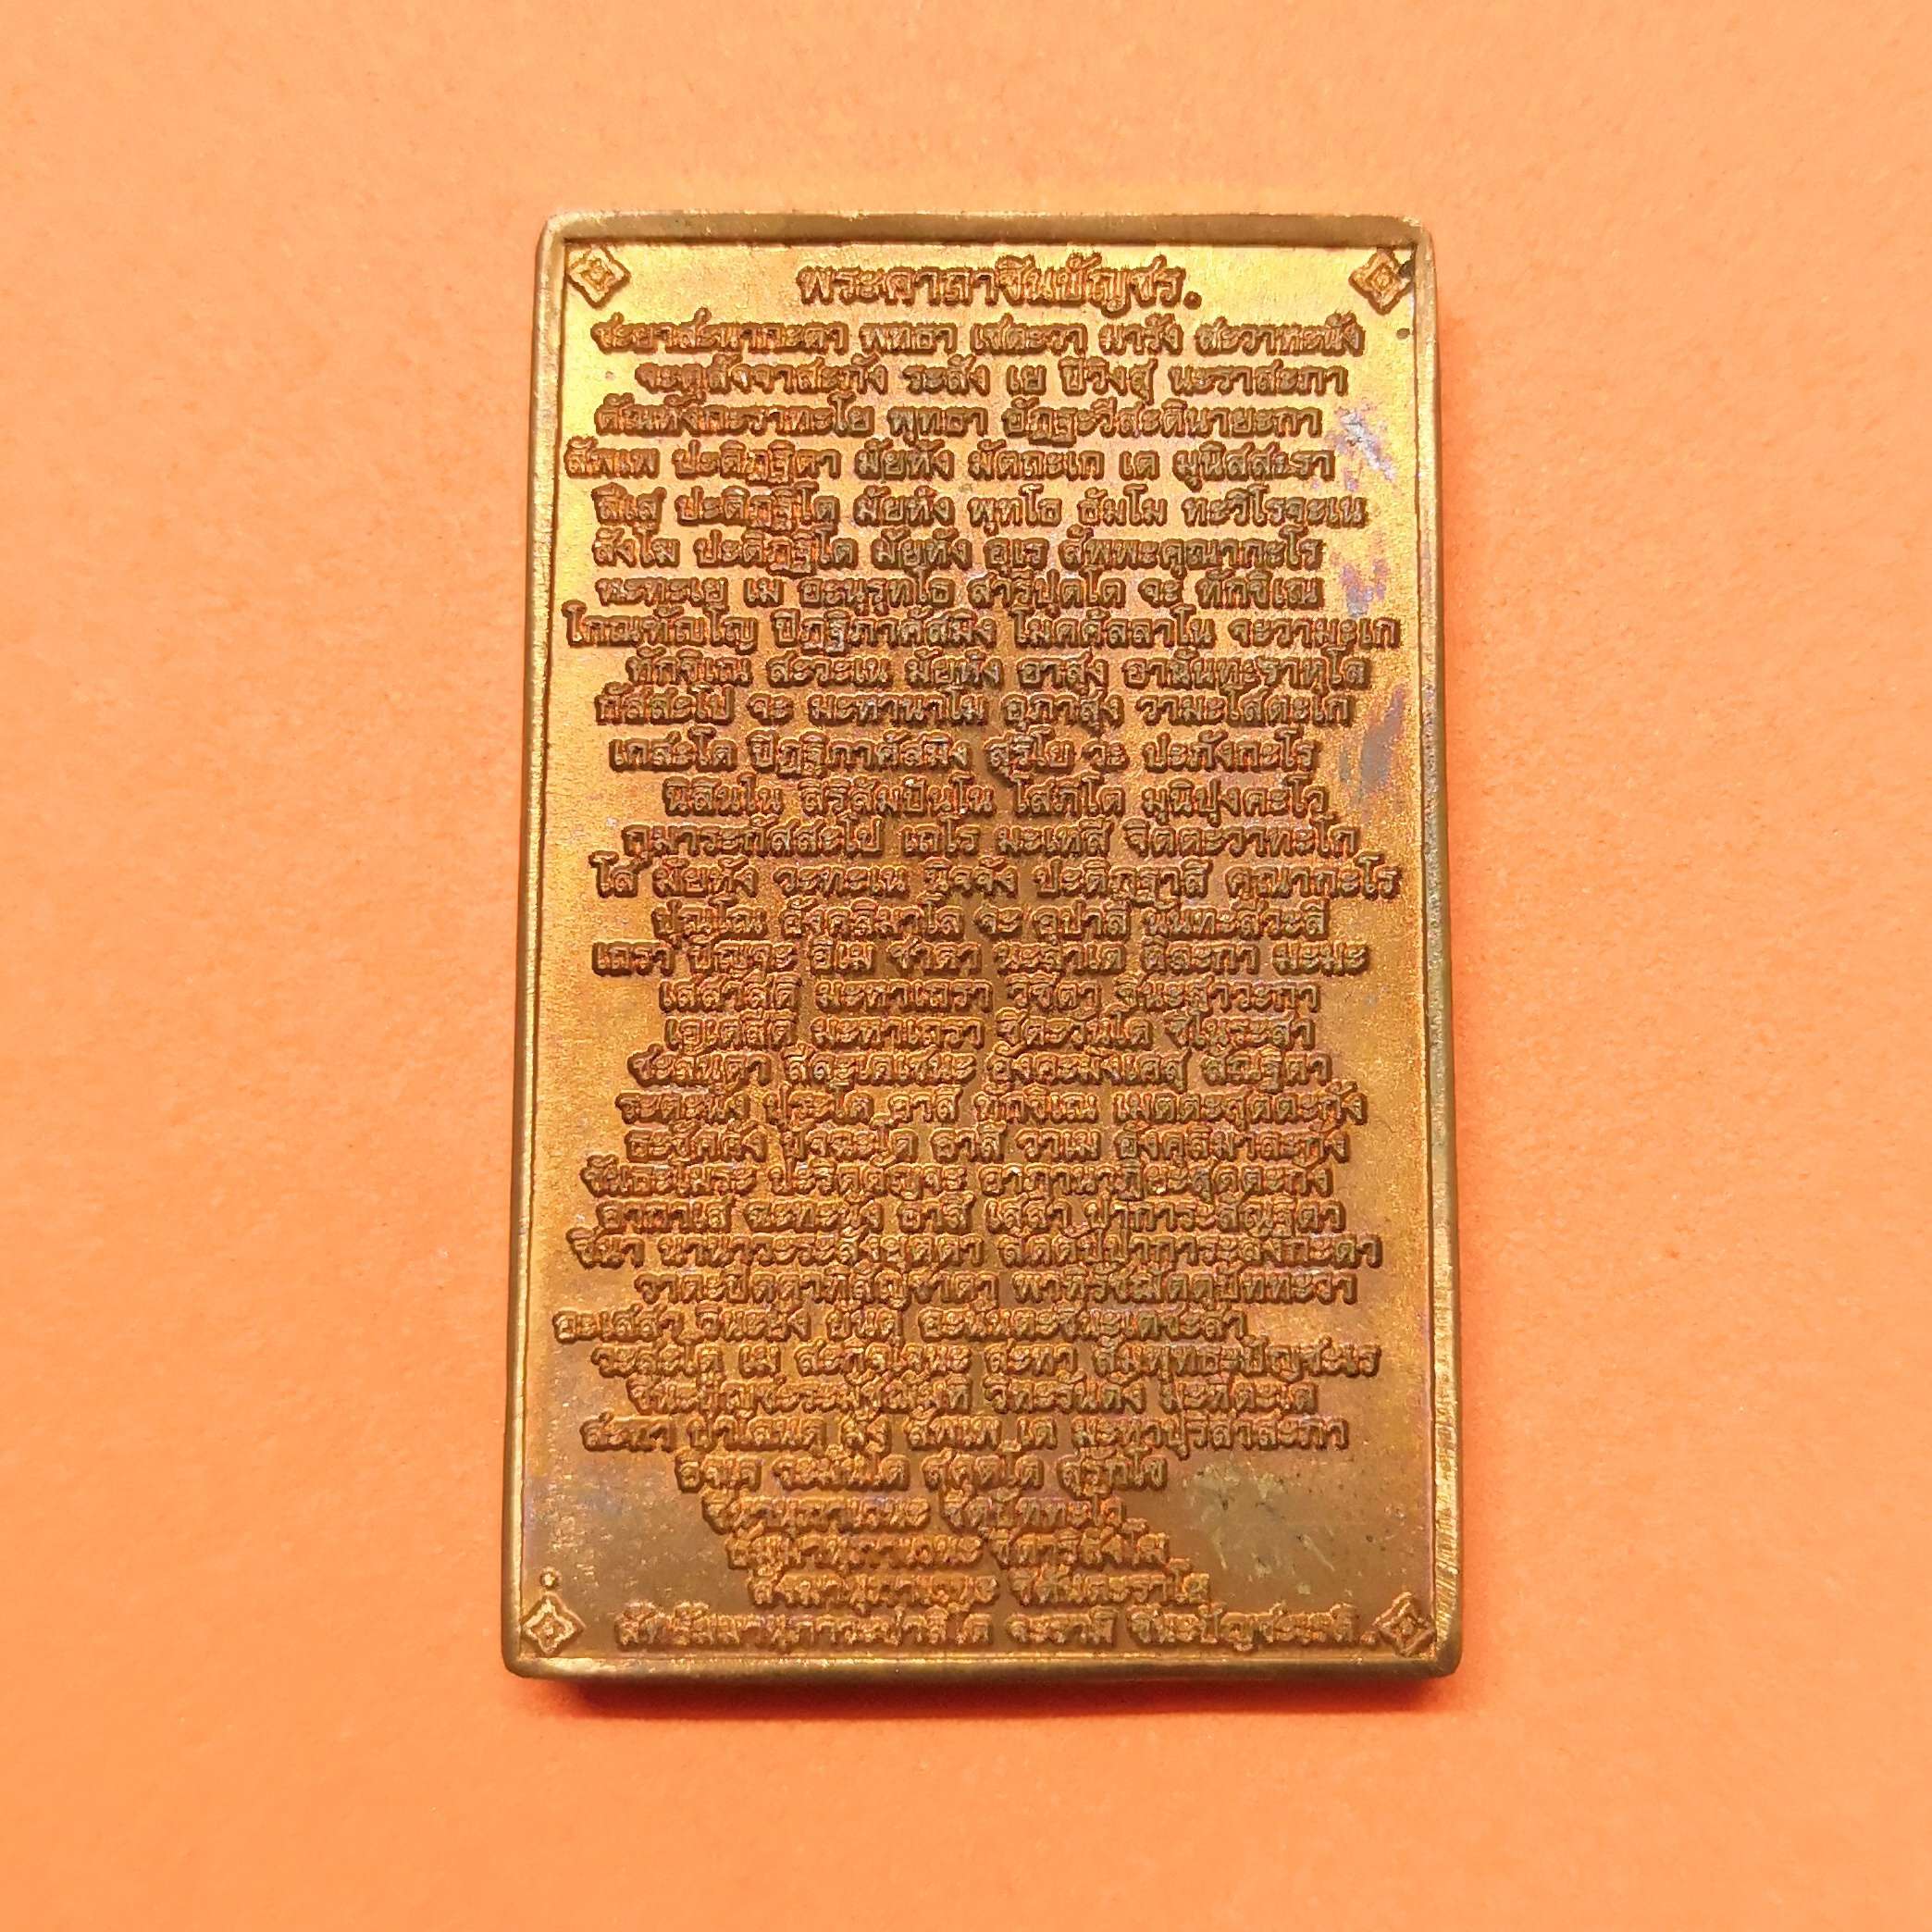 พระคาถาชินบัญชร.
ชะยาสะนากะตา พุทธา เชตะวา มารัง สะวาหะนัง
จะตุสัจจาสะภัง ระสัง เย ปิวิงสุ นะราสะภา
ตัณหังกะราทะโย พุทธา อัฏฐะวีสะตินายะกา
สัพเพ ปะติฏฐิตา มัยหัง มัตถะเก เต มุนิสสะรา
สีเส ปะติฏฐิโต มัยหัง พุทโธ ธัมโม ทะวิโรจะเน
สังโฆ ปะติฏฐิโต มัยหัง อุเร สัพพะคุณากะโร
หะทะเย เม อะนุรุทโธ สารีปุตโต จะ ทักขิเณ
โกณฑัญโญ ปิฏฐิภาคัสมิง โมคคัลลาโน จะวามะเก
ทักขิเณ สะวะเน มัยหัง อาสุง อานันทะราหุโล
กัสสะโป จะ มะหานาโม อุภาสุง วามะโสตะเก
เกสะโต ปิฏฐิภาคัสมิง สุริโย วะ ปะภังกะโร
นิสินโน สิริสัมปันโน โสภิโต มุนิปุงคะโว
กุมาระกัสสะโป เถโร มะเหสี จิตตะวาทะโก
โส มัยหัง วะทะเน นิจจัง ปะติฏฐาสิ คุณากะโร
ปุณโณ อังคุลิมาโล จะ อุปาลี นันทะสีวะลี
เถรา ปัญจะ อิเม ชาตา นะลาเต ติละกา มะมะ
เสสาสีติ มะหาเถรา วิชิตา ชินะสาวะกา
เอเตสีติ มะหาเถรา ชิตะวันโต ชิโนระสา
ชะลันตา สีละเตเชนะ อังคะมังเคสุ สัณฐิตา
ระตะนัง ปุระโต อาสิ ทักขิเณ เมตตะสุตตะกัง
ธะชัคคัง ปัจฉะโต อาสิ วาเม อังคุลิมาละกัง
ขันธะโมระ ปะริตตัญจะ อาฏานาฏิยะสุตตะกัง
อากาเส ฉะทะนัง อาสิ เสสา ปาการะสัณฐิตา
ชินา นานาวะระสังยุตตา สัตตัปปาการะลังกะตา
วาตะปิตตาทิสัญชาตา พาหิรัชฌัตตุปัททะวา
อะเสสา วินะยัง ยันตุ อะนันตะชินะเตชะสา
วะสะโต เม สะกิจเจนะ สะทา สัมพุทธะปัญชะเร
ชินะปัญชะระมัชฌัมหิ วิหะรันตัง มะหีตะเล
สะทา ปาเลนตุ มัง สัพเพ เต มะหาปุริสาสะภา